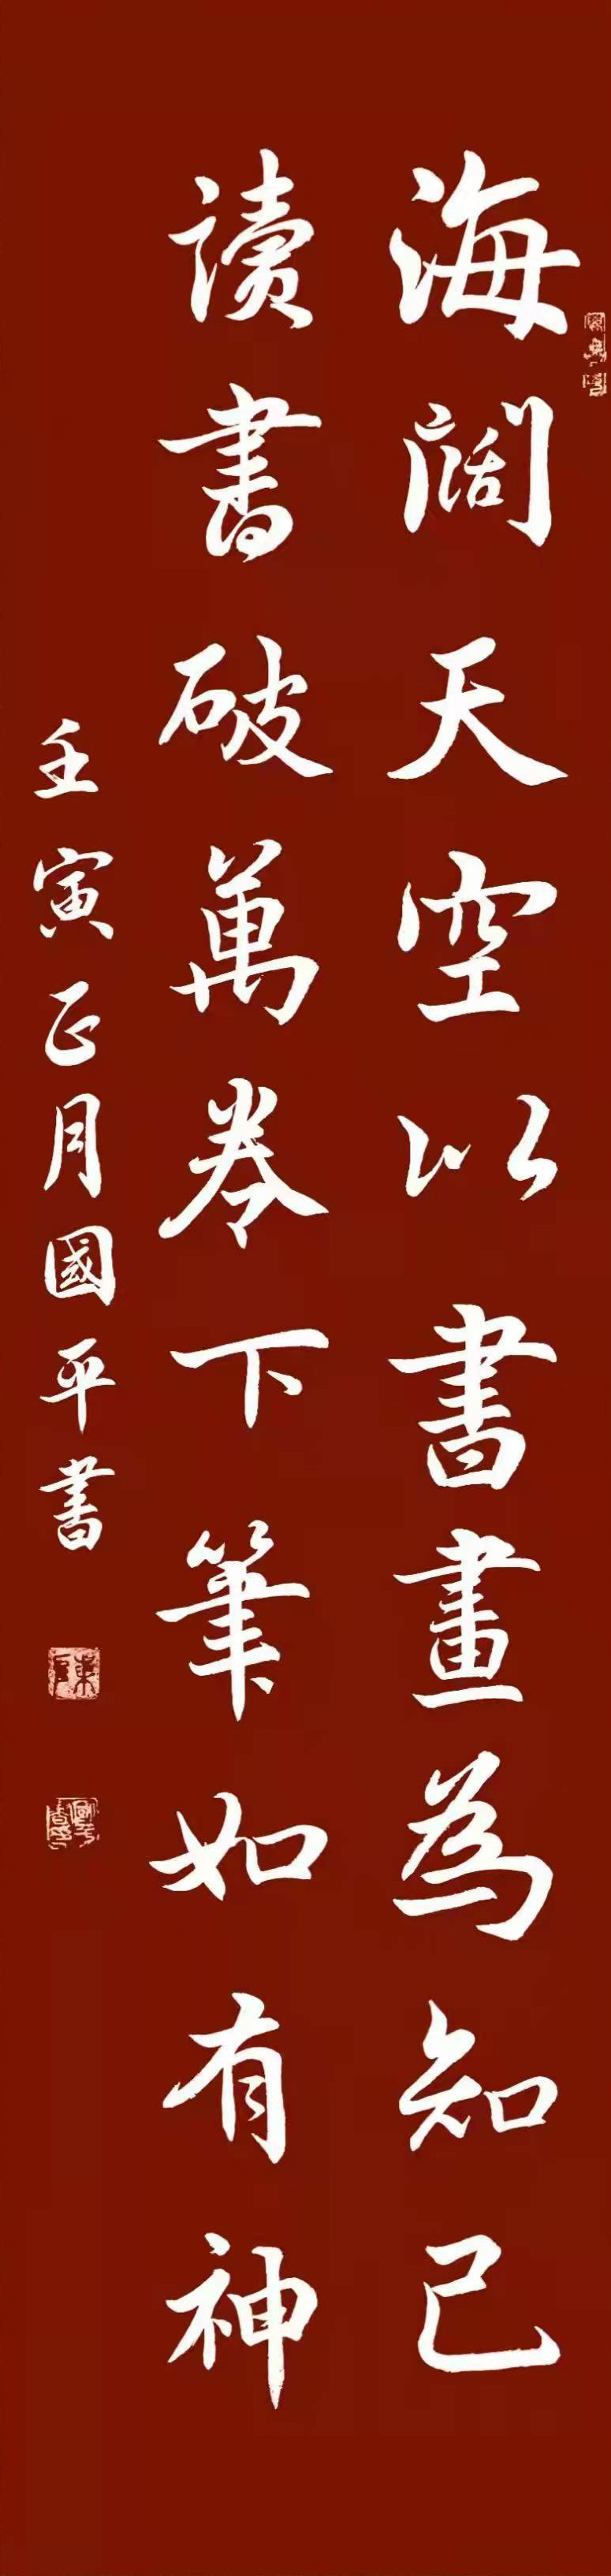 海闊天空以書畫為知己
讀書破萬卷下筆如有神
壬寅正月國平書